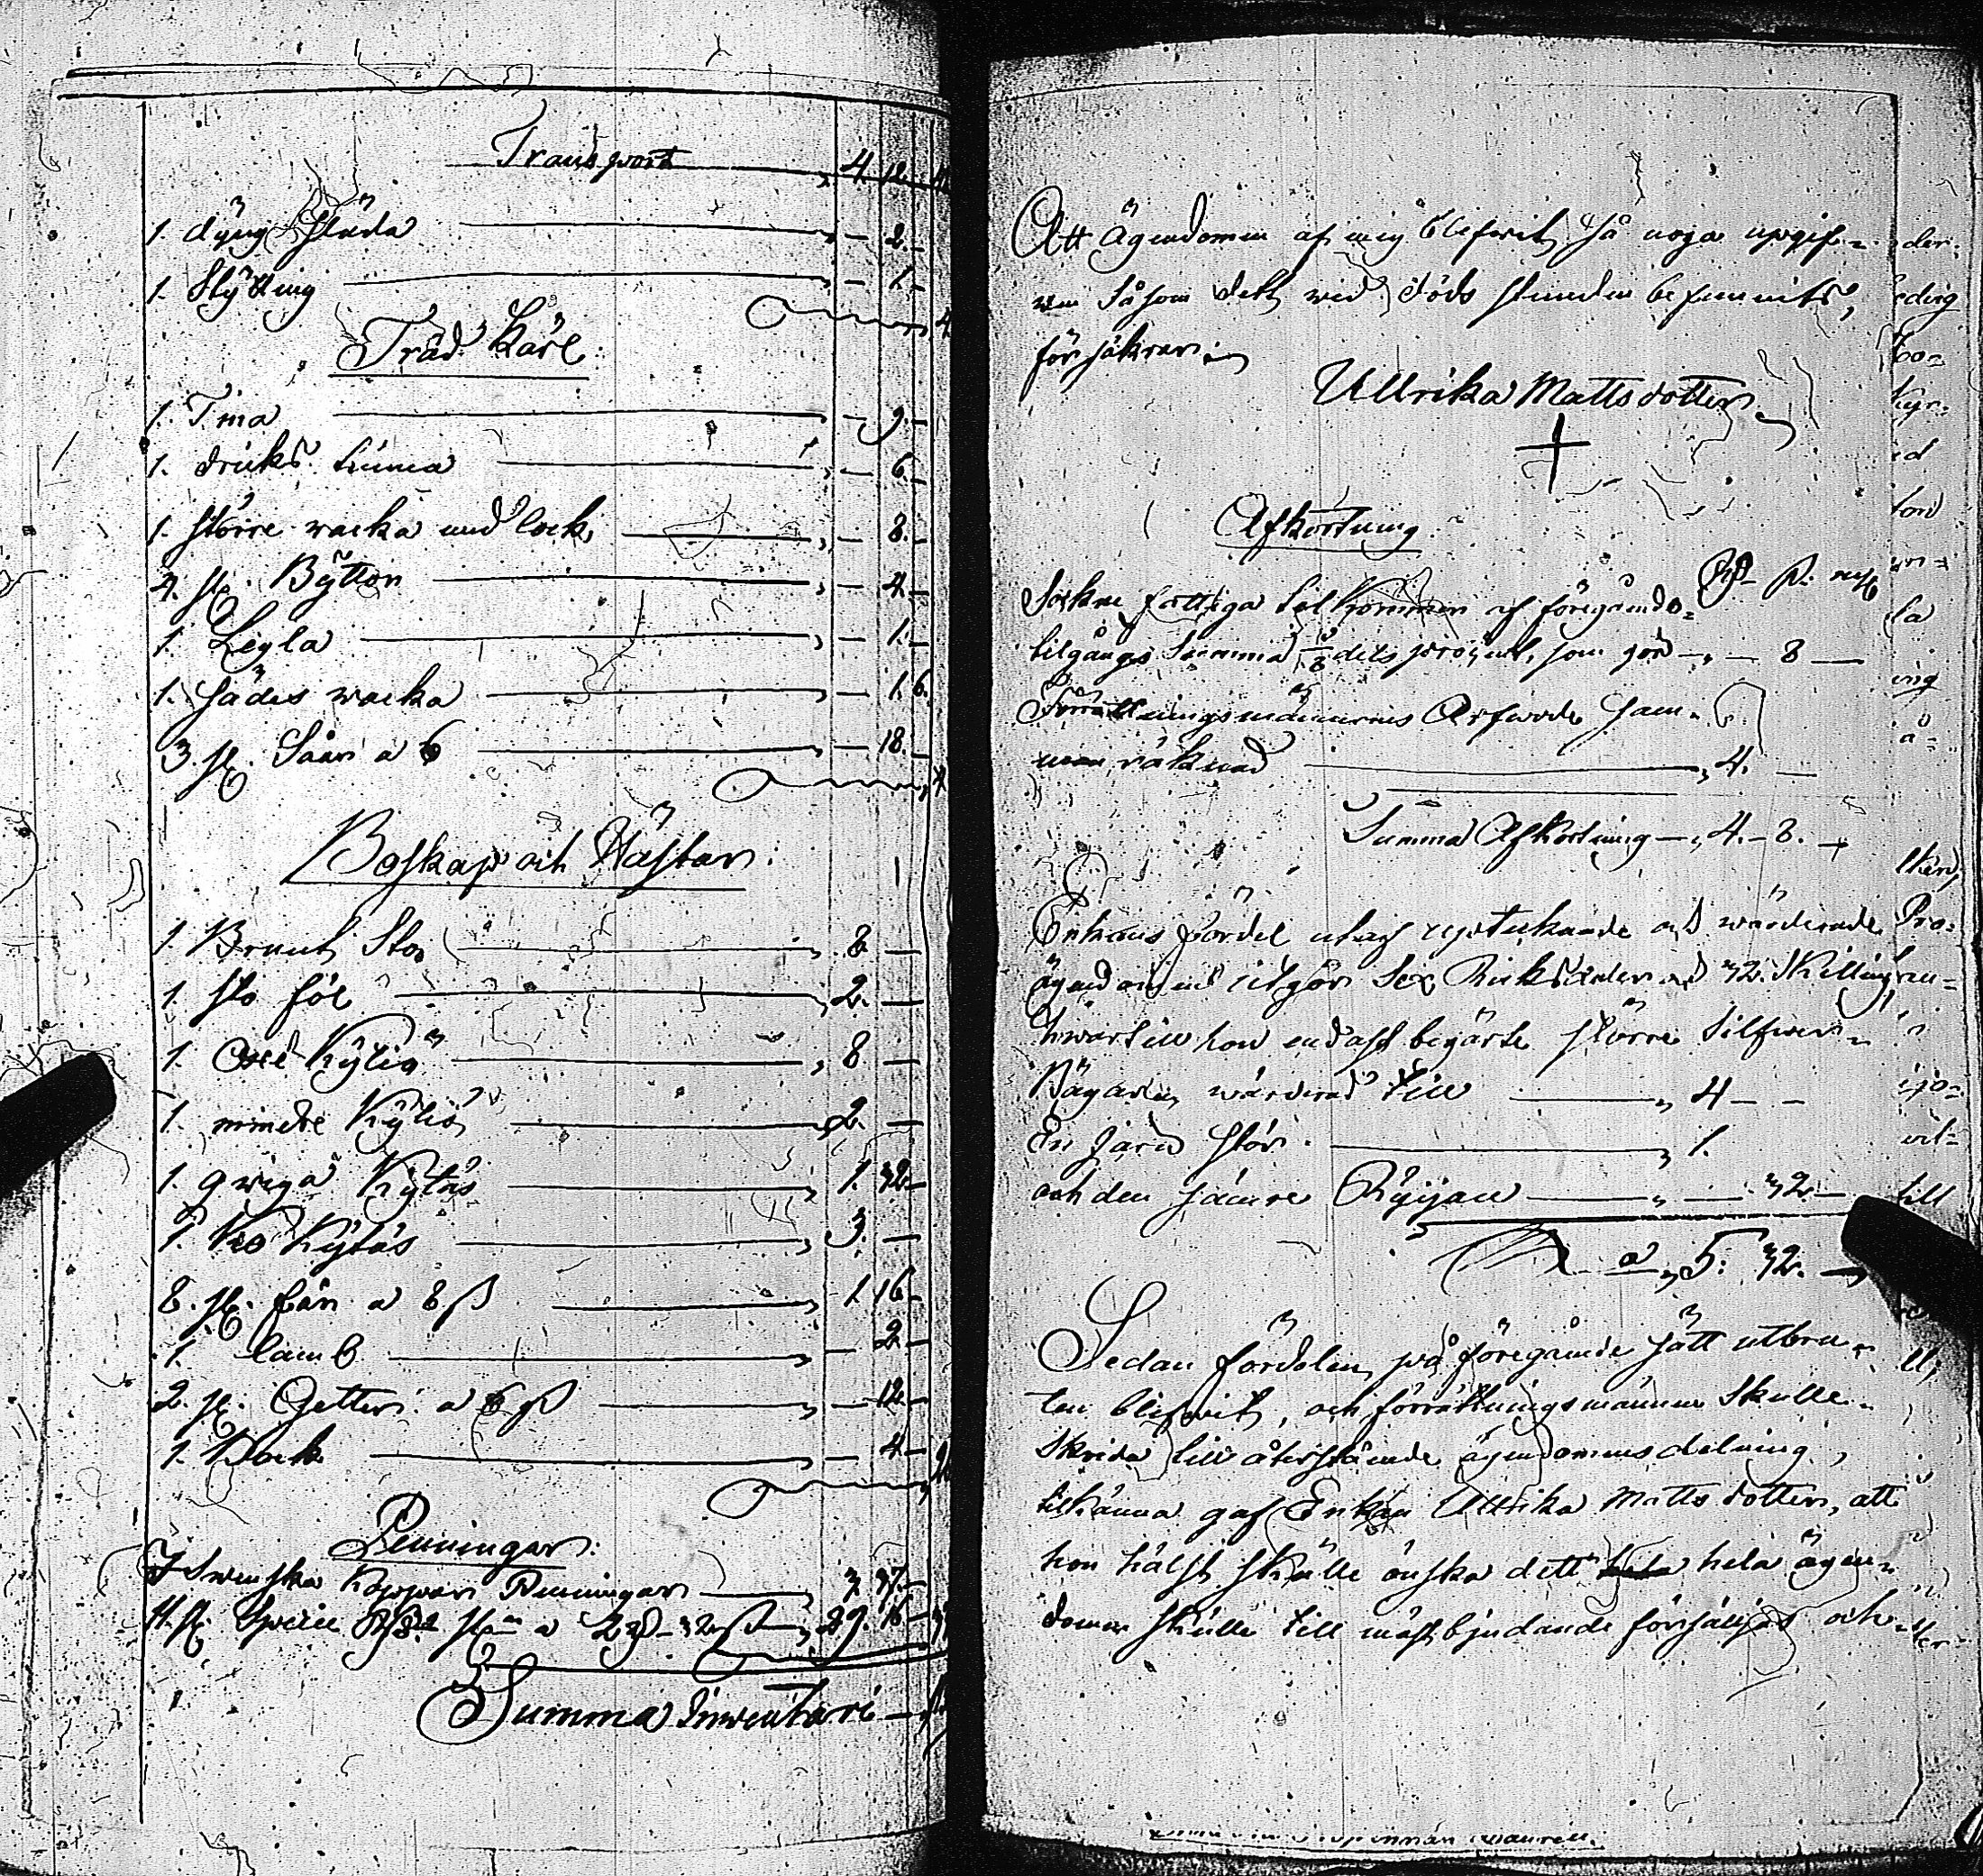 Transport 4. 12.
1. dÿng släda — 2. —
1. Stÿtting — 1. —
Träd Kärl:
1. Tina — 9. —
1. dricks tunna — 6. —
1. större wacka med lock, — 8. —
4. st. Byttor — 4. —
1. Legla — 1. —
1. sädes wacka — 1. 6.
3 st. Såar a 6 — 18. —
Boskap och Hästar:
1. Brunt Sto, 8 —
1. sto föl 2. —
1. Oxe Kÿtiq 8 —
1. mindre Kÿtiö 2. —
1. qwiga Kÿtäs 1. 32 —
1. Ko Kÿtäs 3. —
8. st. får a 8 ß 1. 16 —
1. lamb — 2 —
2. st. Getter: a 6 ß — 12 —
1. Bock — 4 —
Penningar:
I Swenska Koppar Penningar 3. 37. —
11. st. Specie Rd st. a 2 Rd 32 ß 29. 16 —
Summa Inwentari —
Att Ägendomen af mig blefwit så noga upgif=
wen Såsom dett wid döds stunden befunnits,
försäkrar:
Ullrika Mattsdotter
+
Afkortning
Rd ß. rst
Sockne fattiga tilkommer af föregående=
tilgångs Summa 1/8 dels procent, som gör — 8 —
Förrättningsmännernes Arfwode sam=
man räknad 4. —
Summa Afkortning — 4. — 8. —
Enkans fördel utaf uptecknade och wärderade
ägendomen utgör Sex Riksdaler och 32. Skilling
hwartill hon endast begärte större Silfwer=
Bägaren, wärderad till 4 — —
En Järn stör. 1.
och den sämre Rÿijan — 32 —
Rd a 5: 32. —
Sedan fördelen på föregående sätt utbru=
ten blifwit, och förrättningsmännen Skulle
Skrida till återstående ägendomens delning,
tilkänna gaf Enkan Ullrika Matts dotter, att
hon hälst skulle önska dett hela ägen=
domen skulle till mäst bjudande försälljas och